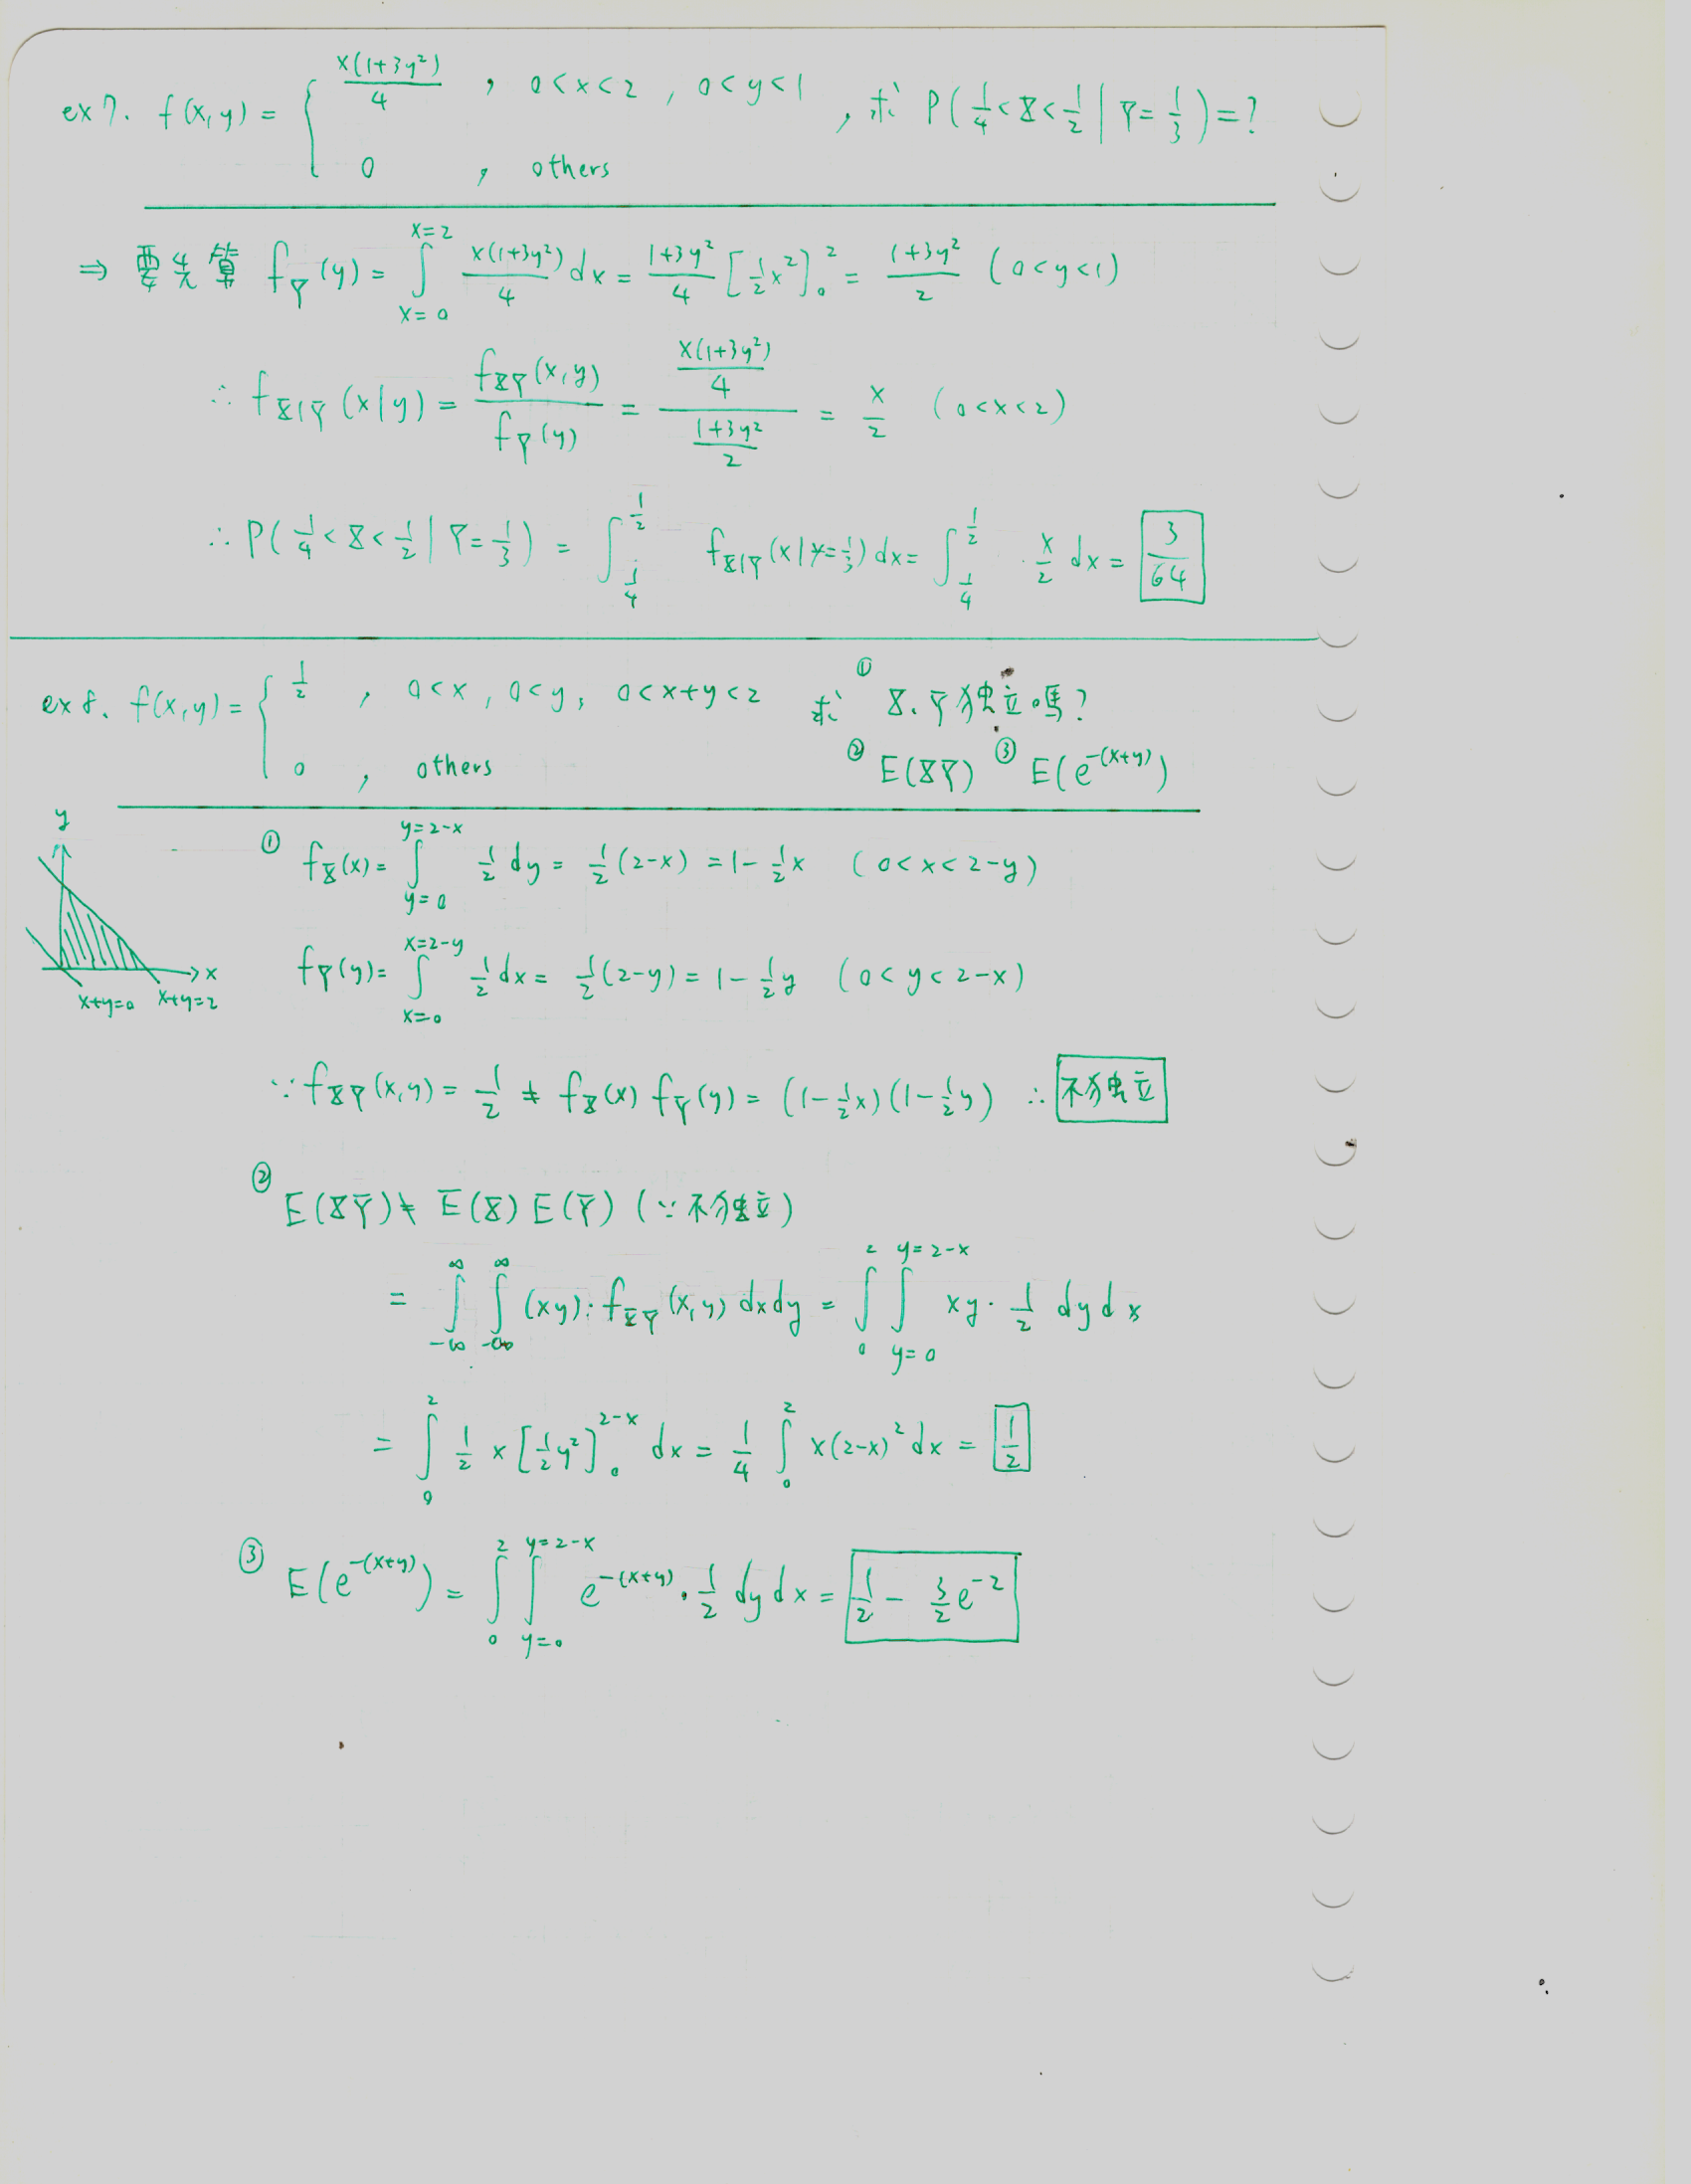 ex7. f(x,y) = { x(1+3y²)/4 , 0<x<2 , 0<y<1 , 求 P(1/4<X<1/2 | Y=1/3)=?
0 , others
⇒ 要先算 f_Y(y) = ∫_{x=0}^{x=2} x(1+3y²)/4 dx = (1+3y²)/4 [1/2 x²]_0^2 = (1+3y²)/2 (0<y<1)
∴ f_{X|Y}(x|y) = f_{XY}(x,y)/f_Y(y) = (x(1+3y²)/4)/((1+3y²)/2) = x/2 (0<x<2)
∴ P(1/4<X<1/2 | Y=1/3) = ∫_{1/4}^{1/2} f_{X|Y}(x|y=1/3)dx = ∫_{1/4}^{1/2} x/2 dx = 3/64
ex8. f(x,y) = { 1/2 , 0<x , 0<y , 0<x+y<2 求 ① X、Y独立嗎?
0 , others ② E(XY) ③ E(e^{-(x+y)})
y
x
x+y=0 x+y=2
① f_X(x) = ∫_{y=0}^{y=2-x} 1/2 dy = 1/2(2-x) = 1-1/2x (0<x<2-y)
f_Y(y) = ∫_{x=0}^{x=2-y} 1/2 dx = 1/2(2-y) = 1-1/2y (0<y<2-x)
∵ f_{XY}(x,y) = 1/2 ≠ f_X(x) f_Y(y) = (1-1/2x)(1-1/2y) ∴ 不独立
② E(XY) ≠ E(X)E(Y) (∵ 不独立)
= ∫_{-∞}^{∞} ∫_{-∞}^{∞} (xy)·f_{XY}(x,y) dxdy = ∫_0^2 ∫_{y=0}^{y=2-x} xy · 1/2 dydx
= ∫_0^2 1/2 x [1/2 y²]_0^{2-x} dx = 1/4 ∫_0^2 x(2-x)² dx = 1/2
③ E(e^{-(x+y)}) = ∫_0^2 ∫_{y=0}^{y=2-x} e^{-(x+y)} · 1/2 dydx = 1/2 - 3/2 e^{-2}